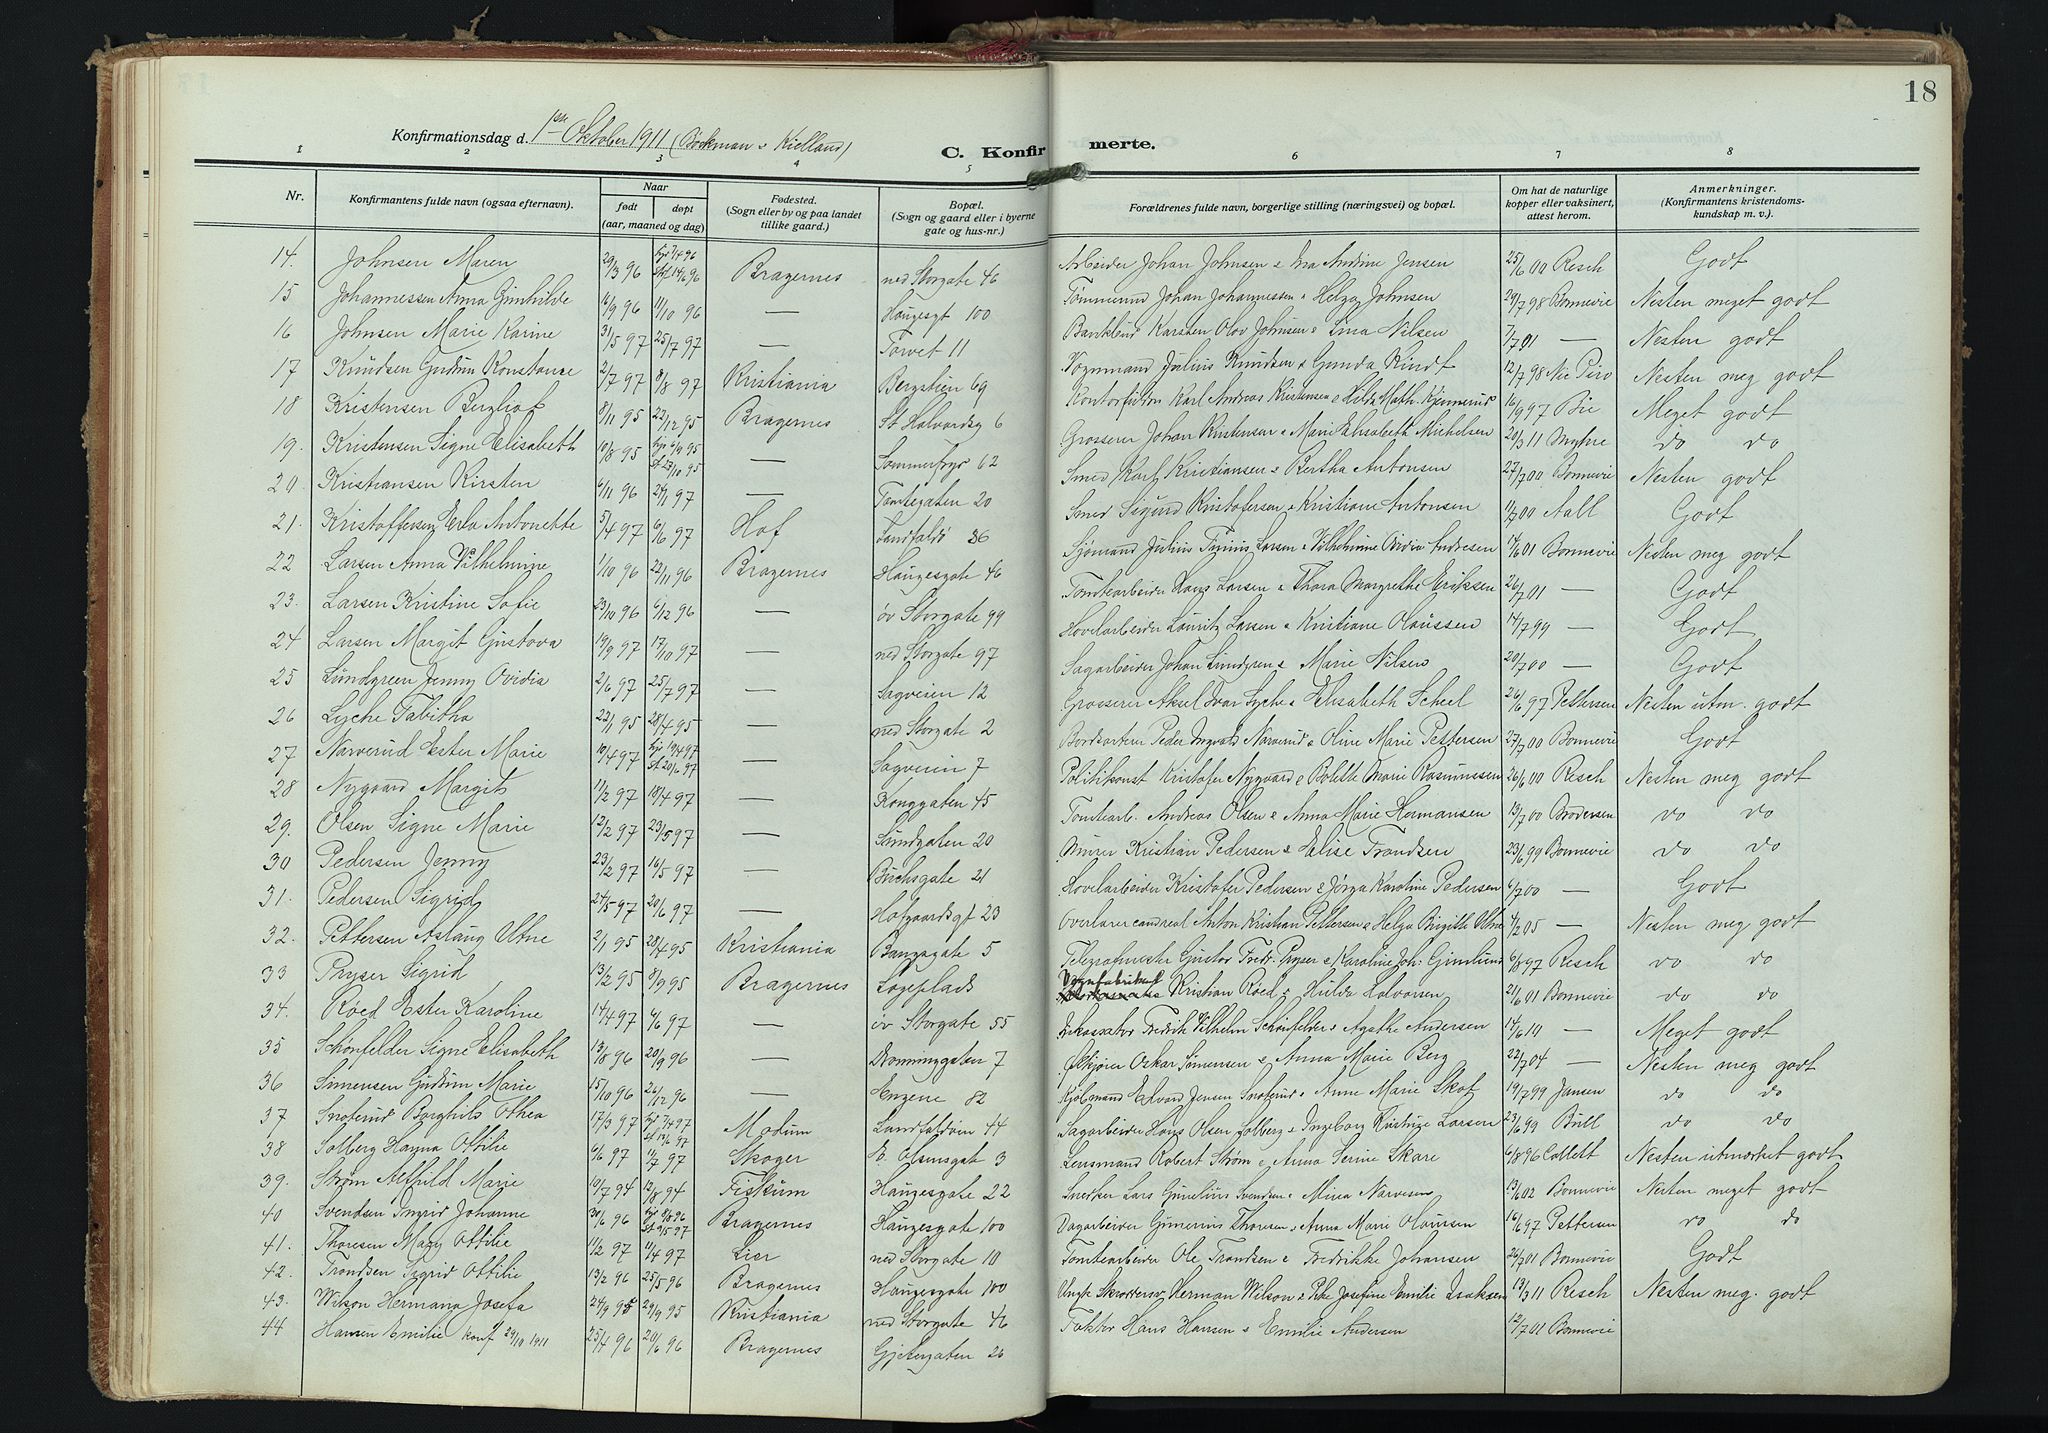 18
Konfirmationsdag d. 1ste Oktober 1911 (Bøckman & Kielland)
C. Konfirmerte.
1 2 3 4 5 6 7 8
Nr. Konfirmantens fulde navn (ogsaa efternavn). Naar født døpt (aar, maaned og dag) Fødested. (Sogn eller by og paa landet tillike gaard.) Bopæl. (Sogn og gaard eller i byerne gate og hus-nr.) Forældrenes fulde navn, borgerlige stilling (næringsvei) og bopæl. Om hat de naturlige kopper eller vaksinert, attest herom. Anmerkninger. (Konfirmantens kristendomskundskap m. v.).
14. Johnsen Maren 29/3 96 Bragernes ned Storgate 46 Arbeider Johan Johnsen & Ina Andine Jensen 25/6 00 Resch Godt
15 Johannessen Anna Gunhilde 16/9 96 11/10 96 — Haugesgt 100 Johan Johannessen & Helga Johnsen 29/7 98 Bonnevie Nesten meget godt
16 Johnsen Marie Karine 31/5 97 25/7 97 — Torvet 11 Bankbud Karsten Olav Johnsen & Lina Nilsen 7/7 01 — Nesten godt
17 Knudsen Gudrun Konstanse 2/7 97 8/8 97 Kristiania Bergstien 69 Vognmand Julius Knudsen & Gunda Rindt 12/7 98 Nesten meg godt
18 Kristensen Bergljot 8/11 95 22/12 95 Bragernes St Halvardsg 6 Karl Andreas Kristensen & Hilda Math. Kjennerud 16/9 97 Bie Meget godt
19. Kristensen Signe Elisabeth 10/8 95 — Sommerfrys 62 Grosserer Johan Kristensen & Marie Elisabeth Michelsen 20/3 11 Myhre do do
20 Kristiansen Kirsten 6/11 96 24/1 97 — Tomtegaten 20 Smed Karl Kristiansen & Bertha Antonsen 27/7 00 Bonnevie Nesten godt
21. Kristoffersen Erla Antonette 5/4 97 6/6 97 Hof Landfaldø 36 Smed Sigurd Kristofersen & Kristiane Antonsen 11/7 00 Aall Godt
22 Larsen Anna Vilhelmine 1/10 96 22/11 96 Bragernes Haugesgate 46 Sjømand Julius Larsen & Vilhelmine Ovidia Andresen 17/6 01 Bonnevie Nesten meg godt
23. Larsen Kristine Sofie 23/10 96 6/12 96 — øv Storgate 99 Tomtearbeider Hans Larsen & Thora Margrethe Eriksen 26/7 01 — Godt
24 Larsen Margit Gustava 19/9 97 17/10 97 — ned Storgate 97 Høvelarbeider Lauritz Larsen & Kristiane Olaussen 14/7 99 — Godt
25 Lundgreen Jenny Ovidia 2/6 97 25/7 97 — Sagveien 12 Sagarbeider Johan Lundgren & Marie Nilsen 20/7 00 — Godt
26 Lyche Tabitha 22/1 95 28/4 95 — ned Storgate 2 Grosserer Aksel Ivar Lyche & Elisabeth Scheel 26/6 97 Pettersen Nesten utm. godt
27 Narverud Ester Marie 10/4 97 — Sagveien 7 Bordsorterer Peder Ingvald Narverud & Oline Marie Pettersen 27/7 00 Bonnevie Godt
28 Nygaard Margit 11/2 97 18/4 97 — Konggaten 45 Politikonst Kristofer Nygaard & Bolette Marie Rasmussen 26/6 00 Resch Nesten meg godt
29. Olsen Signe Marie 12/2 97 23/5 97 — Sundgaten 20 Tomtearb. Andreas Olsen & Anna Marie Hermansen 13/7 00 Brodersen do do
30 Pedersen Jenny 23/2 97 16/5 97 — Buchsgate 21 Murer Kristian Pedersen & Elise Trondsen 23/6 99 Bonnevie do do
31. Pedersen Sigrid 24/5 97 20/6 97 — Hofgaardsgt 23 Høvelarbeider Kristofer Pedersen & Jørga Karoline Pedersen 6/7 00 — Godt
32. Pettersen Aslaug Utne 2/1 95 28/4 95 Kristiania Bangsgate 5 Overlærer cand real Anton Kristian Pettersen & Helga Birgitte Utne 4/2 05 — Nesten meg godt
33 Pryser Sigrid 13/2 95 8/9 95 Bragernes Logeplads Telegrafmester Gustav Fredr. Pryser & Karoline Joh. Gimlund 6/8 97 Resch do do
34. Røed Ester Karoline 14/4 97 6/6 97 — øv Storgate 55 Vognfabrikant Kristian Røed & Hilda Halvorsen 21/6 01 Bonnevie do do
35 Schønfelder Signe Elisabeth 13/8 96 20/9 96 — Dronninggaten 7 Inkassator Fredrik Vilhelm Schønfelder & Agathe Andersen 14/6 10 — Meget godt
36 Simensen Gudrun Marie 15/10 96 26/12 96 — Engene 82 Ølkjører Oskar Simensen & Anna Marie Berg 22/7 04 — Nesten meg godt
37 Snoterud Borghild Othea 17/3 97 Modum Landfaldøen 44 Edvard Jensen Snoterud & Anne Marie Skot 19/7 99 Jansen do do
38 Solberg Hanna Ottilie 6/6 97 11/7 97 Skoger B. Olsensgate 3 Sagarbeider Hans Olsen Solberg & Ingeborg Kristine Larsen 23/6 99 Bull do do
39. Strøm Alfhild Marie 10/7 94 12/8 94 Fiskum Haugesgate 22 Lensmand Robert Strøm & Anna Serine Skare 6/8 96 Collett Nesten utmerket godt
40 Svendsen Ingrid Johanne 30/6 96 Bragernes Haugesgate 100 Snekker Lars Gunelius Svendsen & Mina Narvesen 13/6 02 Bonnevie Nesten meget godt
41. Thoresen Mary Ottilie 11/2 97 11/4 97 Lier ned Storgate 10 Dagarbeider Gunerius Thoresen & Anna Marie Olausen 16/6 97 Pettersen do do
42. Trondsen Sigrid Ottilie 13/2 96 25/5 96 Bragernes Haugesgate 100 Tomtearbeider Ole Trondsen & Fredrikke Johansen 26/7 01 Bonnevie Godt
43. Wilson Hermana Josefa 24/9 95 29/9 95 Kristiania ned Storgate 46 Herman Wilson & Josefine Emilie Isaksen 13/3 11 Resch Nesten meg. godt
44 Hansen Emilie konf 29/10 1911 25/4 96 20/6 96 Bragernes Gjetergaten 26 Faktor Hans Hansen & Emilie Andersen 12/7 01 Bonnevie